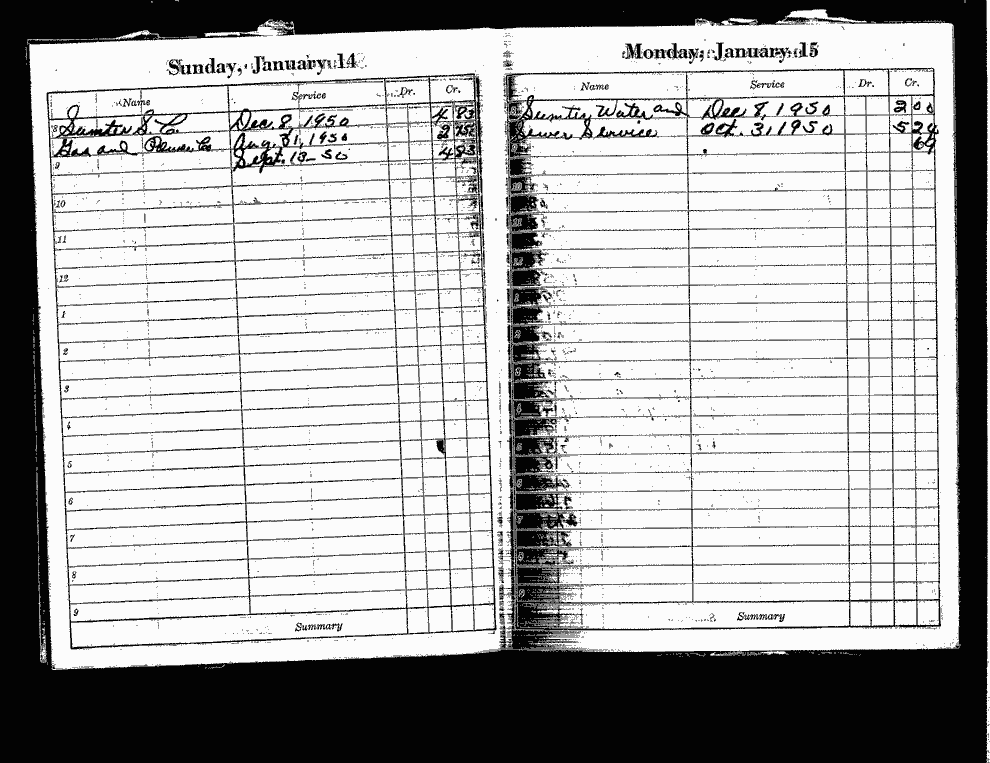 Sunday, January 14
Name Service Dr. Cr.
8 Sumter S. C. Dec. 8, 1950 4 83
Gas and Power Co Aug. 31, 1950 2 75
9 Sept. 13-50 4 83
10
11
12
1
2
3
4
5
6
7
8
9
Summary
Monday, January 15
Name Service Dr. Cr.
Sumter Water and Dec 8, 1950 2 00
Sewer Service Oct. 31, 1950 5 24
69
Summary